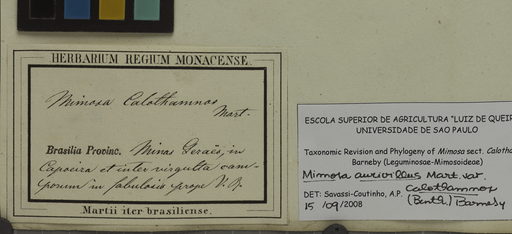 HERBARIUM REGIUM MONACENSE.
Mimosa Calothamnos
Mart.
Brasilia Provinc. Minas Geraës, in
Capoeira et inter virgulta cam-
porum in sabulosis prope V. R.
Martii iter brasiliense.
ESCOLA SUPERIOR DE AGRICULTURA "LUIZ DE QUEIR
UNIVERSIDADE DE SAO PAULO
Taxonomic Revision and Phylogeny of Mimosa sect. Calotha
Barneby (Leguminosae-Mimosoideae)
Mimosa aurivillus Mart. var.
calothamnos
DET: Savassi-Coutinho, A.P.
(Benth.) Barneby
15 /09/2008